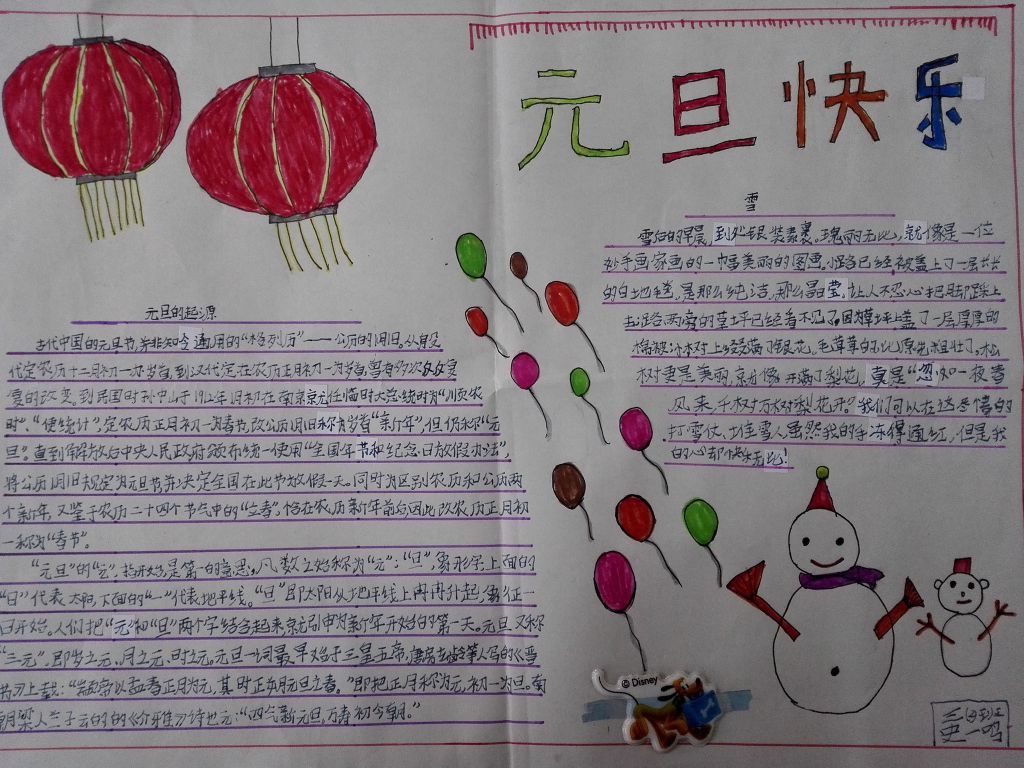 元旦快乐
元旦的起源
古代中国的元旦节,并非如今通用的“格列历”——公历的1月1日,从殷
代定农历十二月初一为岁首,到汉代定在农历正月初一为岁首,
变的改变。到民国时孙中山于1912年1月初在南京就任临时大总统时为“顺农
时”、“便统计”,定农历正月初一为春节,改公历1月1日为岁首“新年”,但仍称“元
旦”。直到解放后中央人民政府颁布统一使用“全国年节和纪念日放假办法”,
将公历1月1日规定为元旦节并决定全国在此节放假一天。同时为区别农历和公历两
个新年,又鉴于农历二十四个节气中的“立春”,恰在农历新年前后因此改农历正月初
一称为“春节”。
“元旦”的“元”,指开始,是第一的意思,凡数之始称为“元”;“旦”,象形字上面的
“日”代表太阳,下面的“一”代表地平线。“旦”即太阳从地平线上冉冉升起,象征一
日开始。人们把“元”和“旦”两个字结合起来就引申为新年开始的第一天。元旦又称
“三元”,即岁之元、月之元、时之元。元旦一词最早始于三皇五帝,唐房玄龄等人写的《晋
书》上载:“颛帝以孟春正月为元,其时正朔元旦之春。”即把正月称为元,初一为旦。南
朝梁人兰子云的的《介雅》诗也元:“四气新元旦,万寿初今朝。”
雪
雪后的早晨,到处银装素裹。瑰丽无比,就像是一位
妙手画家画的一幅美丽的图画。小路已经被盖上了一层长长
的白地毯,是那么纯洁,那么晶莹,让人不忍心把脚踩上
去。路两旁的草坪已经看不见了,因为草坪上盖了一层厚厚的
棉被。树上缀满了银花,毛茸茸的比原先粗壮了。松
树更是美丽,就像开满了梨花,真是“忽如一夜春
风来,千树万树梨花开”。我们可以在这尽情的
打雪仗、堆雪人虽然我的手冻得通红,但是我
的心却快乐无比!
© Disney
三(4)班
史一鸣